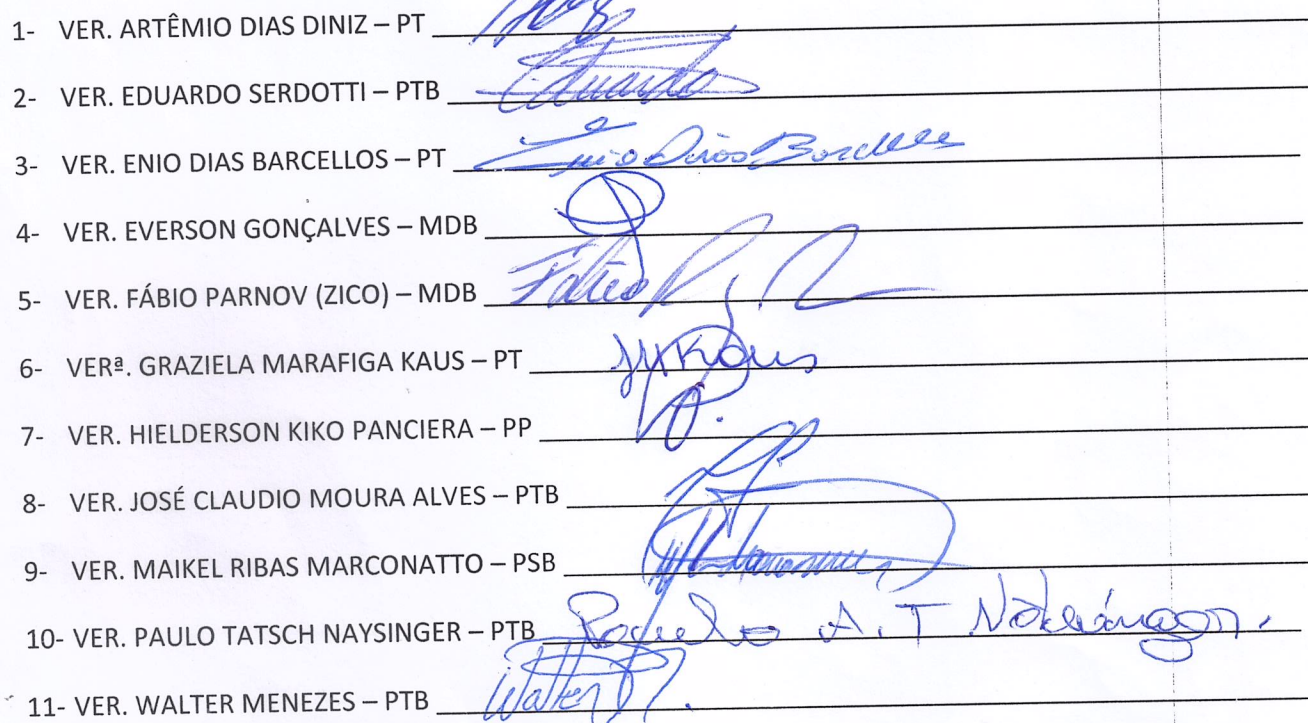 1- VER. ARTÊMIO DIAS DINIZ – PT
2- VER. EDUARDO SERDOTTI – PTB Eduardo
3- VER. ENIO DIAS BARCELLOS – PT Enio Dias Barcellos
4- VER. EVERSON GONÇALVES – MDB
5- VER. FÁBIO PARNOV (ZICO) – MDB Fábio
6- VERª. GRAZIELA MARAFIGA KAUS – PT Kaus
7- VER. HIELDERSON KIKO PANCIERA – PP
8- VER. JOSÉ CLAUDIO MOURA ALVES – PTB
9- VER. MAIKEL RIBAS MARCONATTO – PSB
10- VER. PAULO TATSCH NAYSINGER – PTB A. T
11- VER. WALTER MENEZES – PTB Walter